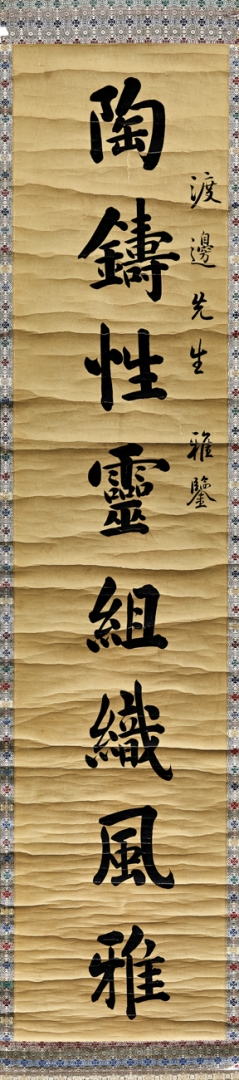 渡邊先生 雅鑒
陶鑄性靈組織風雅